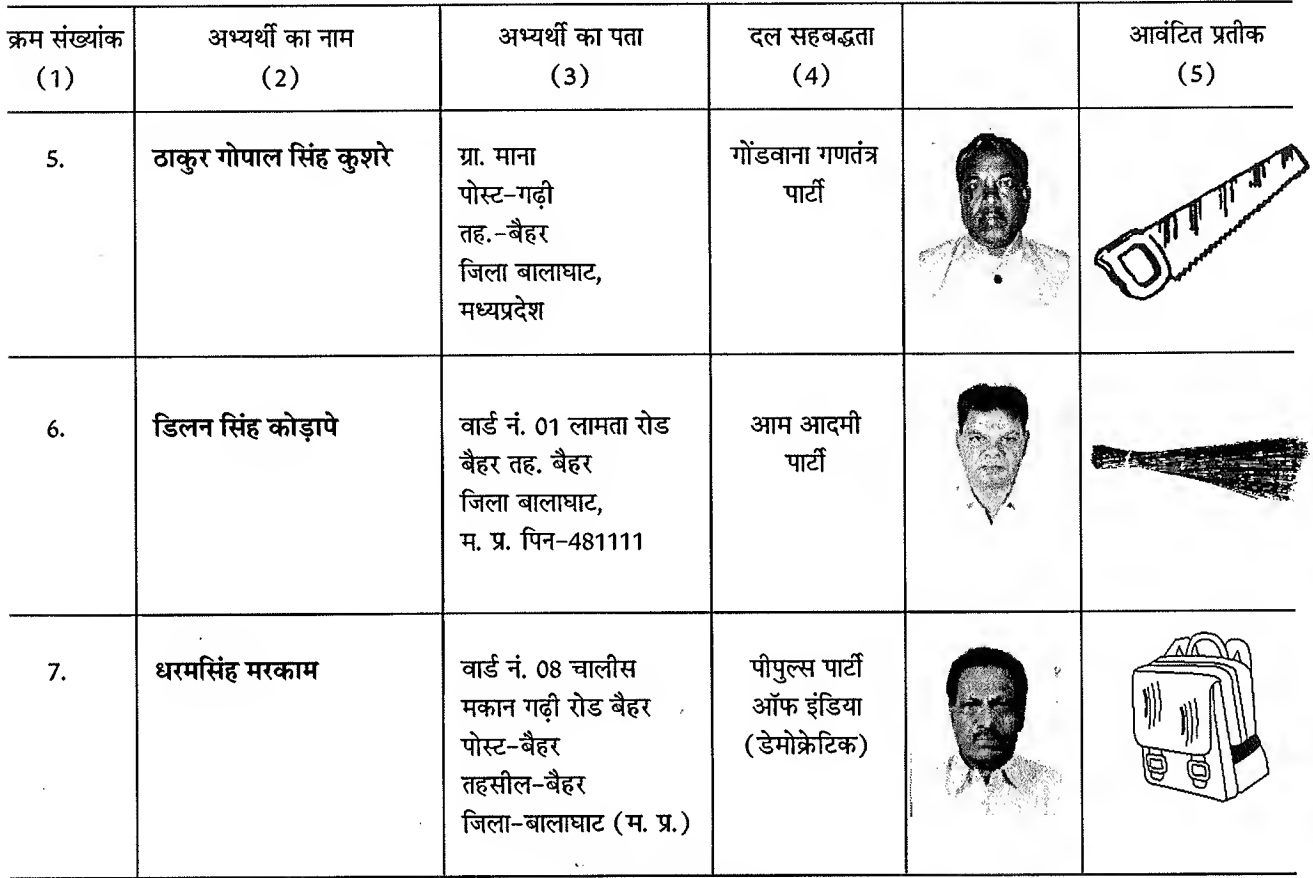 क्रम संख्यांक
(1)
अभ्यर्थी का नाम
(2)
अभ्यर्थी का पता
(3)
दल सहबद्धता
(4)
आवंटित प्रतीक
(5)
5.
ठाकुर गोपाल सिंह कुशरे
ग्रा. माना
पोस्ट-गढ़ी
तह.-बैहर
जिला बालाघाट,
मध्यप्रदेश
गोंडवाना गणतंत्र
पार्टी
6.
डिलन सिंह कोड़ापे
वार्ड नं. 01 लामता रोड
बैहर तह. बैहर
जिला बालाघाट,
म. प्र. पिन-481111
आम आदमी
पार्टी
7.
धरमसिंह मरकाम
वार्ड नं. 08 चालीस
मकान गढ़ी रोड बैहर
पोस्ट-बैहर
तहसील-बैहर
जिला-बालाघाट (म. प्र.)
पीपुल्स पार्टी
ऑफ इंडिया
(डेमोक्रेटिक)